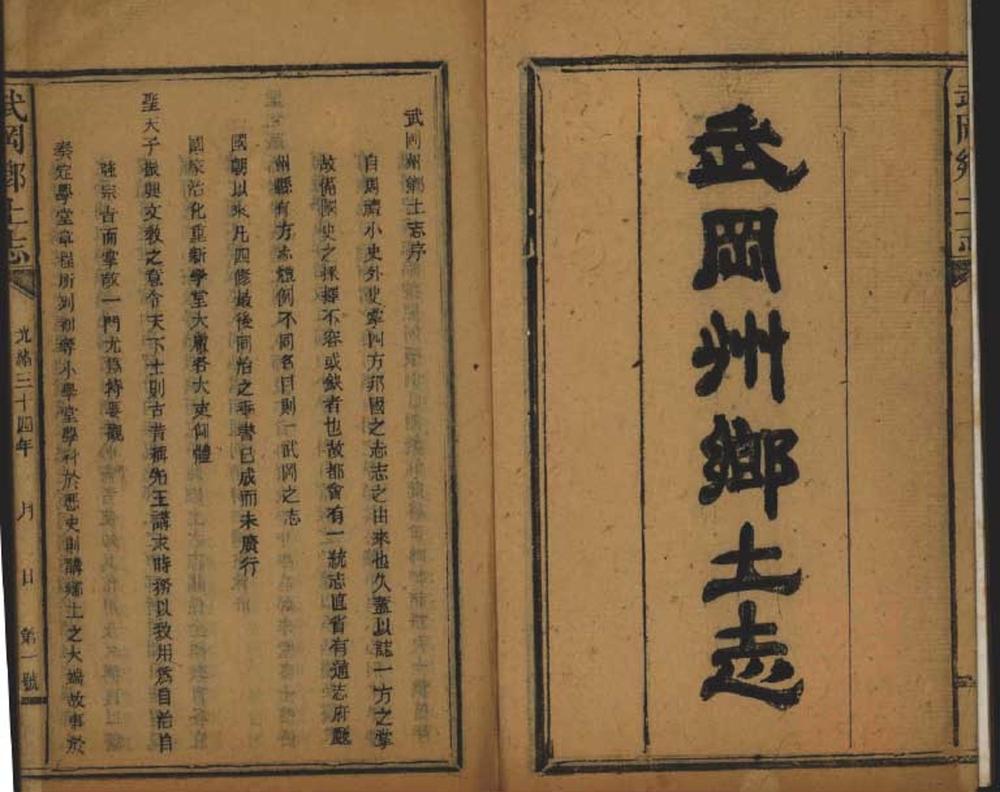 武岡州鄉土志
武岡州鄉土志序
自周禮小史外史掌四方邦國之志志之由來也久蓋以誌一方之掌
故備國史之採擇不容或缺者也故都會有一統志直省有通志府廳
州縣有方志體例不同名目則一武岡之志
國朝以來凡四修最後同治之季書已成而未廣行
國家治化重新學堂大啟各大吏仰體
聖天子振興文教之意令天下士則古昔稱先王講求時務以致用為自治自
強宗旨而掌故一門尤為特要觀
奏定學堂章程所列初等小學堂學科於歷史則講鄉土之大端故事於
武岡鄉土志
光緒三十四年 月 日 第一號